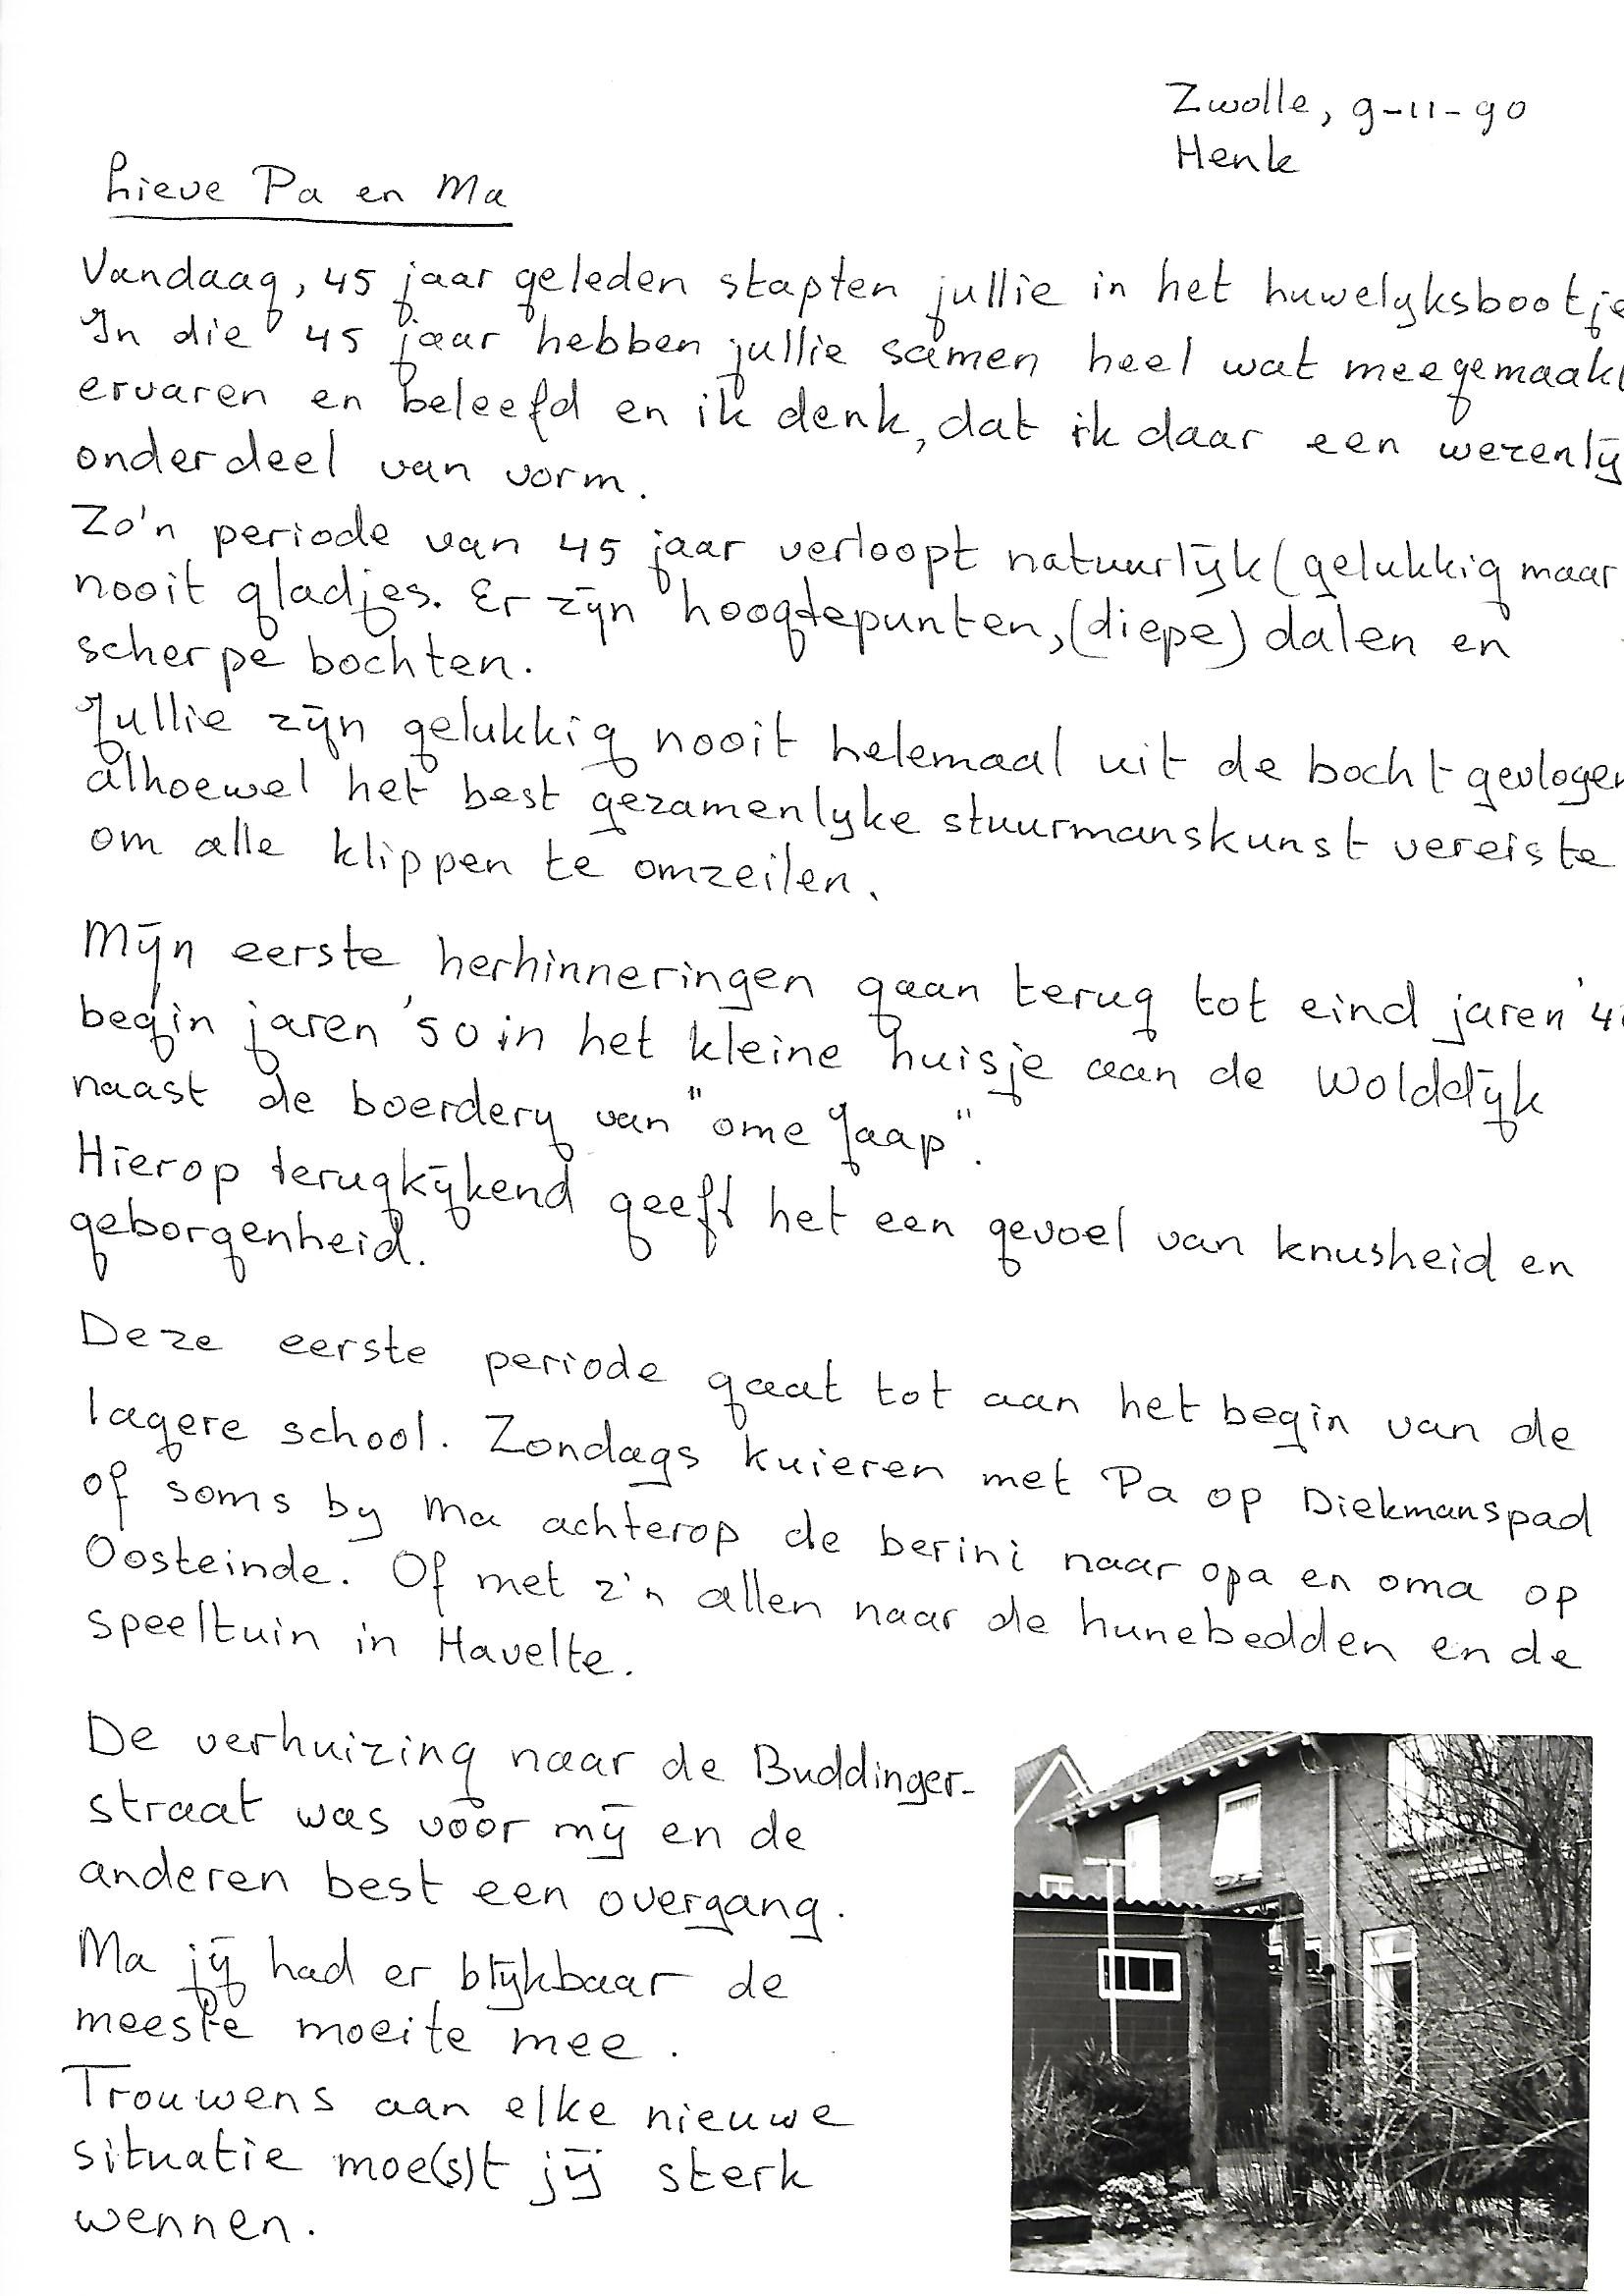 Zwolle, 9-11-90
Henk
Lieve Pa en Ma
Vandaag, 45 jaar geleden stapten jullie in het huwelijksbootje
In die 45 jaar hebben jullie samen heel wat meegemaakt
ervaren en beleefd en ik denk, dat ik daar een wezenlij
onderdeel van vorm.
Zo'n periode van 45 jaar verloopt natuurlijk (gelukkig maar
nooit gladjes. Er zijn hoogtepunten, (diepe) dalen en
scherpe bochten.
Jullie zijn gelukkig nooit helemaal uit de bocht gevlogen
alhoewel het best gezamenlijke stuurmanskunst vereiste
om alle klippen te omzeilen.
Mijn eerste herhinneringen gaan terug tot eind jaren '4
begin jaren '50 in het kleine huisje aan de Wolddijk
naast de boerderij van "ome Jaap".
Hierop terugkijkend geeft het een gevoel van knusheid en
geborgenheid.
Deze eerste periode gaat tot aan het begin van de
lagere school. Zondags kuieren met Pa op Diekmanspad
of soms bij Ma achterop de berini naar opa en oma op
Oosteinde. Of met z'n allen naar de hunebedden en de
speeltuin in Havelte.
De verhuizing naar de Buddinger-
straat was voor mij en de
anderen best een overgang.
Ma jij had er blijkbaar de
meeste moeite mee.
Trouwens aan elke nieuwe
situatie moe(s)t jij sterk
wennen.